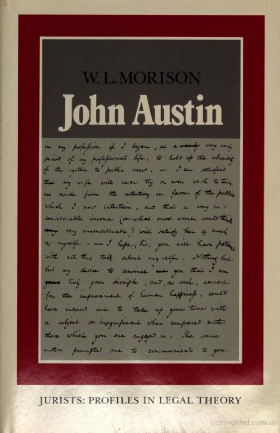 W. L. MORISON
John Austin
in my profession if I began, at a very early
period of my professional life, to hold up the absurdity
of the system to public view. — I am satisfied
that my wife will never try or even wish to turn
me aside from the intentions in favor of the public
which I now entertain, and that a very in-
considerable income (somewhat most women would think
very inconsiderable) will satisfy her as much
as myself. — I hope, Sir, you will have patience
with all this talk about myself. Nothing but
but my desire to convince you that I am
truly your disciple, and, as such, anxious
for the improvement of human happiness, could
have induced me to take up your time with
a subject so insignificant when compared with
those which you are engaged in. The same
motive prompted me to communicate to you
JURISTS: PROFILES IN LEGAL THEORY
Copyrighted material